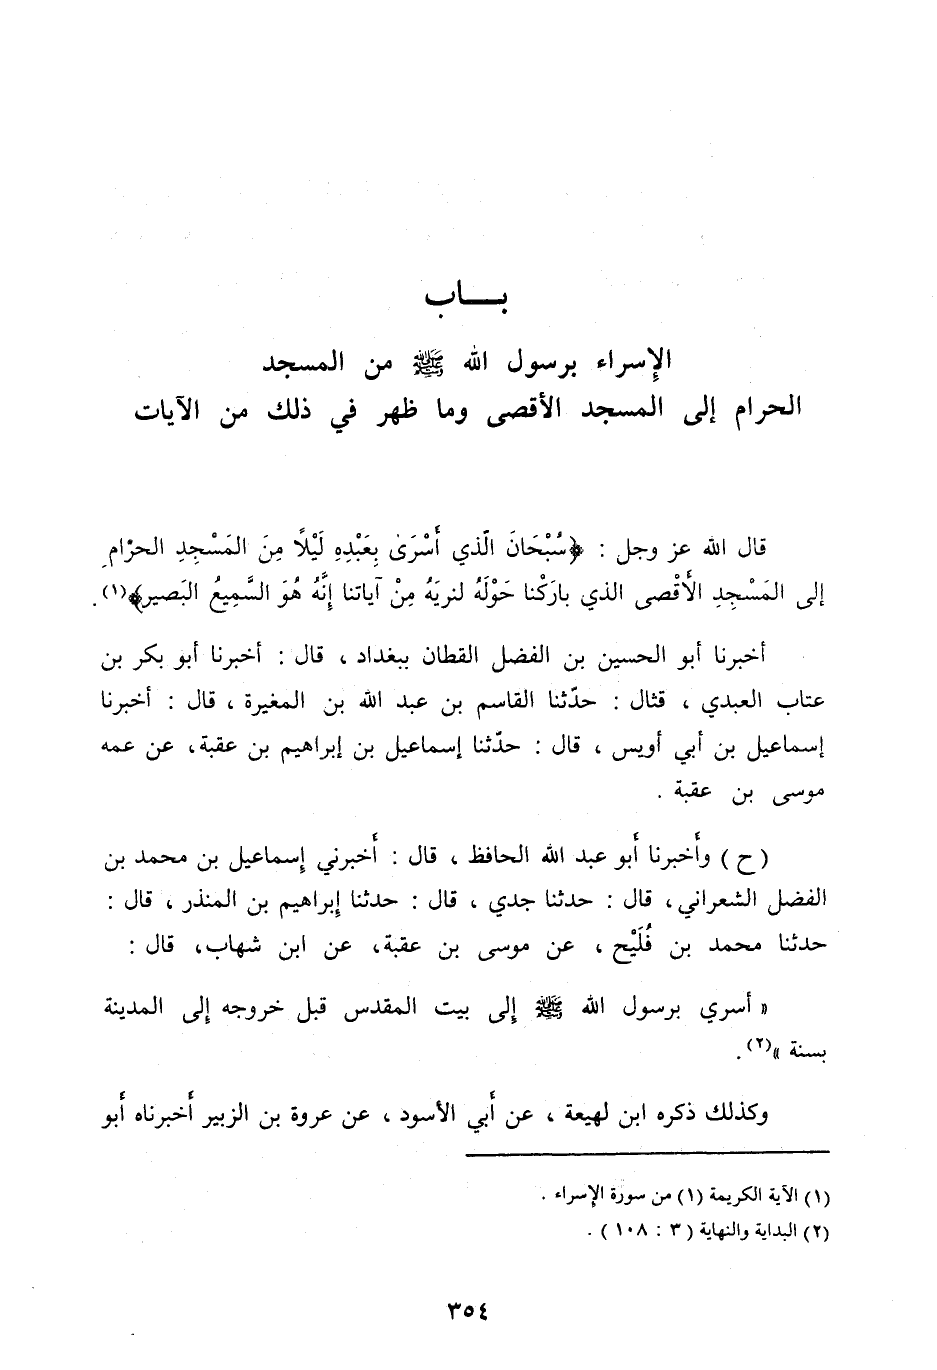 بـــاب
الإسراء برسول الله ﷺ من المسجد
الحرام إلى المسجد الأقصى وما ظهر في ذلك من الآيات
قال الله عز وجل : ﴿سُبْحَانَ الَّذي أَسْرَىٰ بِعَبْدِهِ لَيْلًا مِنَ المَسْجِدِ الحرَامِ
إلى المَسْجِدِ الأَقْصى الذي بارَكْنا حَوْلَهُ لنريَهُ مِنْ آياتنا إنَّهُ هُوَ السَّمِيعُ البَصير﴾(١).
أخبرنا أبو الحسين بن الفضل القطان ببغداد ، قال : أخبرنا أبو بكر بن
عتاب العبدي ، قثال : حدّثنا القاسم بن عبد الله بن المغيرة ، قال : أخبرنا
إسماعيل بن أبي أويس ، قال : حدّثنا إسماعيل بن إبراهيم بن عقبة ، عن عمه
موسى بن عقبة .
( ح ) وأخبرنا أبو عبد الله الحافظ ، قال : أخبرني إسماعيل بن محمد بن
الفضل الشعراني ، قال : حدثنا جدي ، قال : حدثنا إبراهيم بن المنذر ، قال :
حدثنا محمد بن فُلَيْح ، عن موسى بن عقبة ، عن ابن شهاب ، قال :
« أسري برسول الله ﷺ إلى بيت المقدس قبل خروجه إلى المدينة
بسنة »(٢) .
وكذلك ذكره ابن لهيعة ، عن أبي الأسود ، عن عروة بن الزبير أخبرناه أبو
(١) الآية الكريمة (١) من سورة الإسراء .
(٢) البداية والنهاية ( ٣ : ١٠٨ ) .
٣٥٤